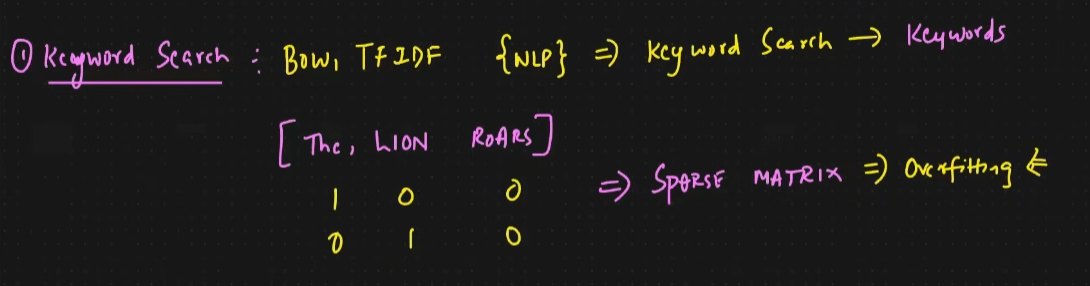 ① Keyword Search : BOW, TFIDF {NLP} ⇒ Keyword Search → Keywords
[The, LION ROARS]
1 0 0 ⇒ SPARSE MATRIX ⇒ Overfitting ⇐
0 1 0